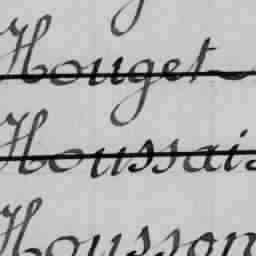 Houget
Houssais
Housson